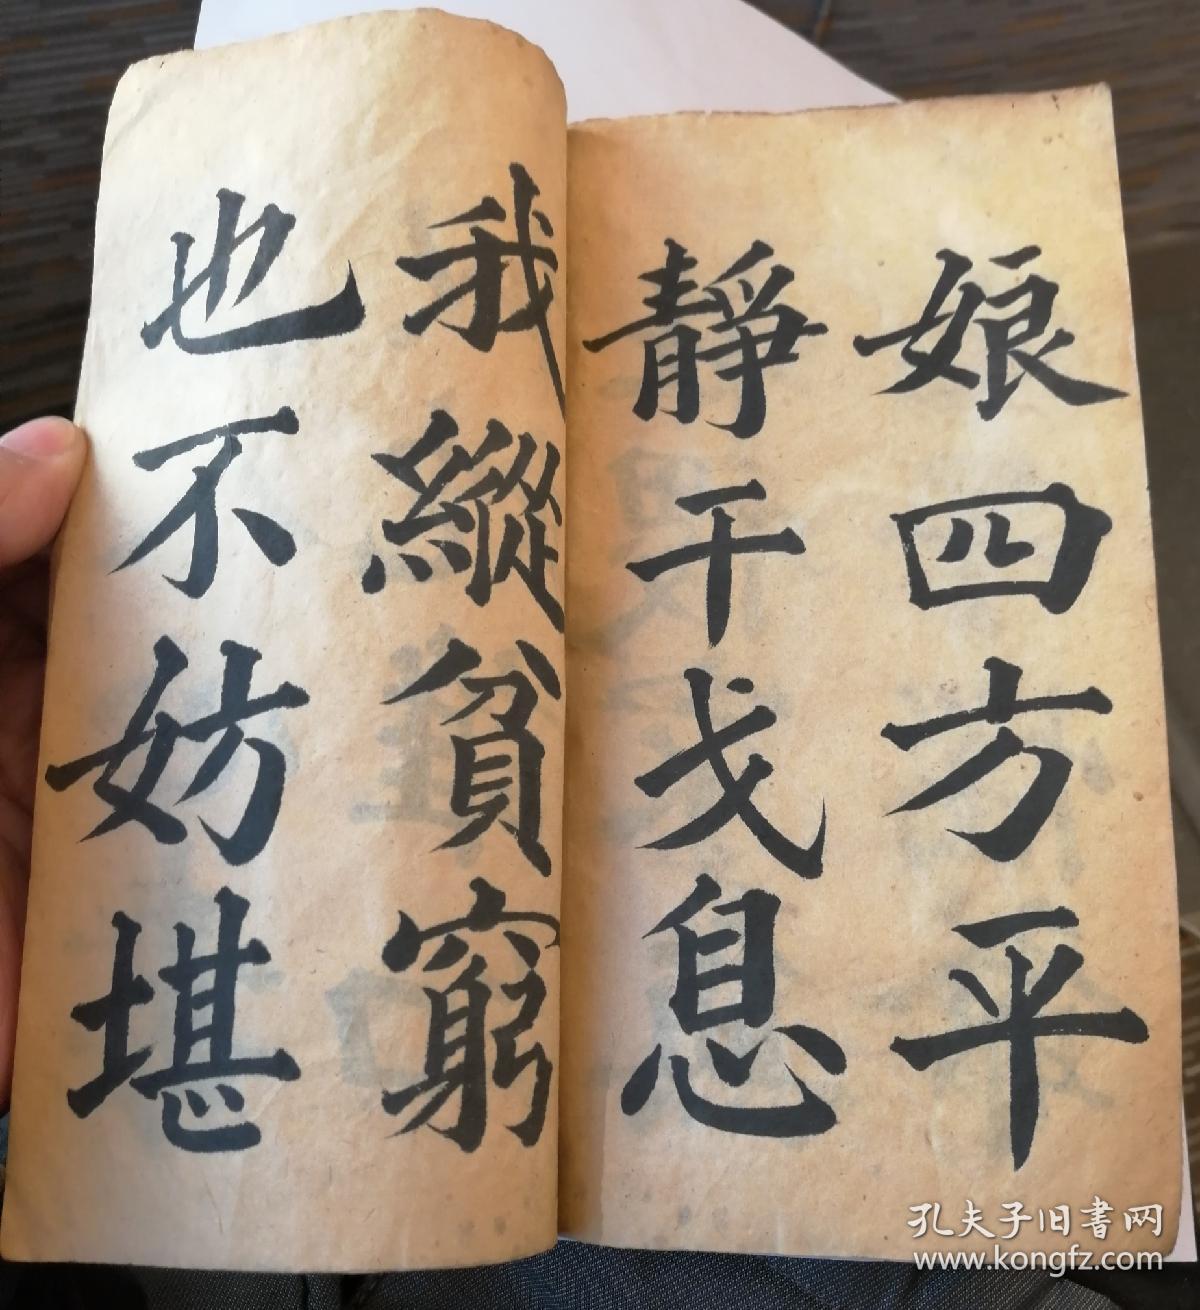 娘四方平
靜干戈息
我縱貧窮
也不妨堪
孔夫子旧書网
www.kongfz.com